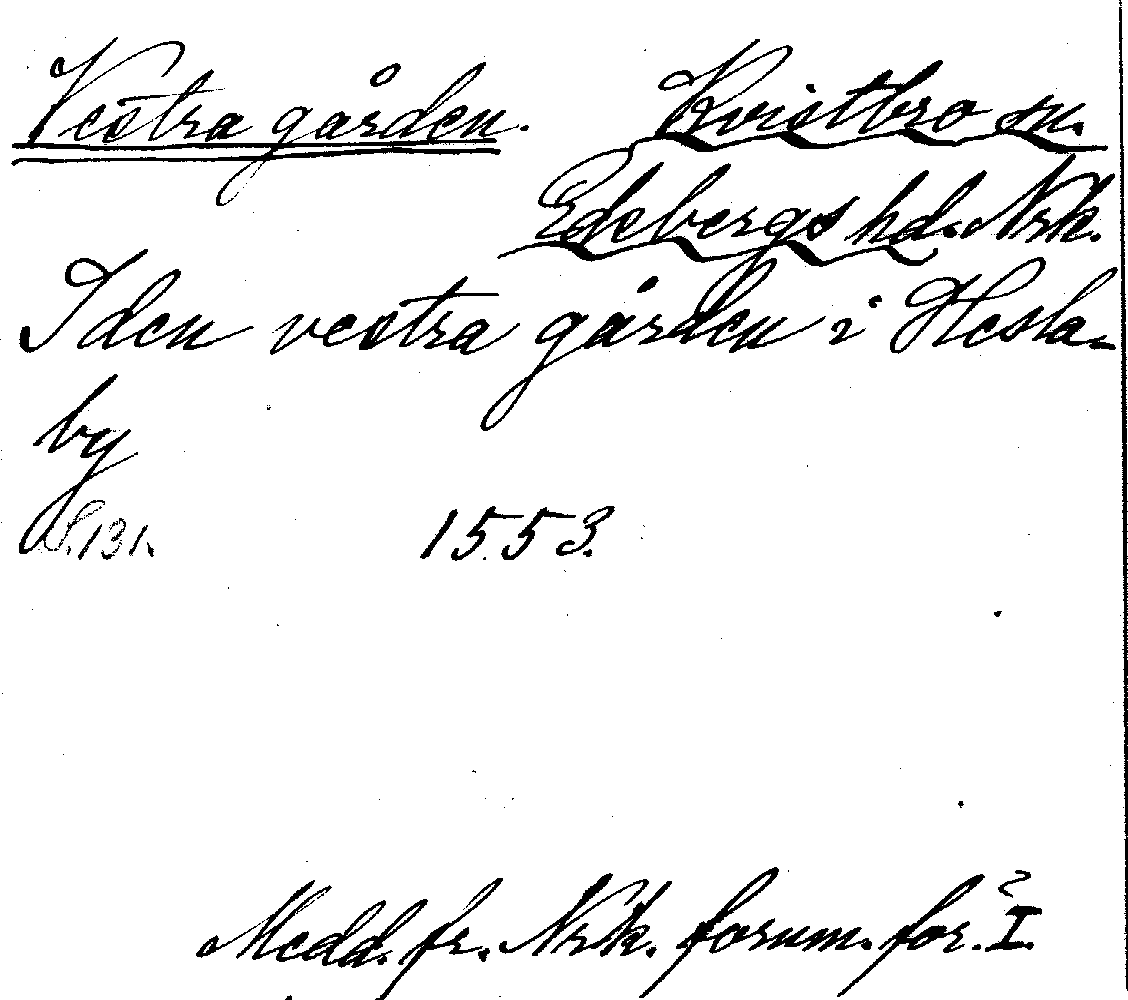 Vestra gården. Kvistbro sn.
Edebergs hd. Nrk.
I den vestra gården i Hesla-
by
S. 131. 1553.
Medd. fr. Nrk. fornm. för. I.